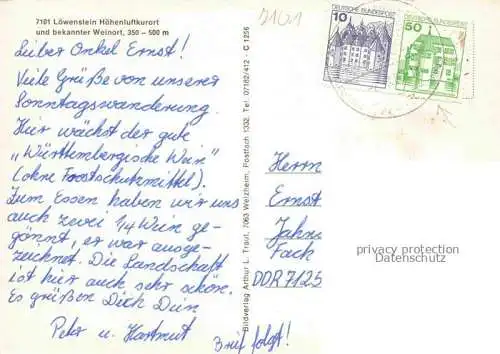 7101 Löwenstein Höhenluftkurort
und bekannter Weinort, 350 – 500 m
7101
Lieber Onkel Ernst!
Viele Grüße von unserer
Sonntagswanderung.
Hier wächst der gute
„Württembergische Wein"
(ohne Frostschutzmittel).
Zum Essen haben wir uns
auch zwei 1/4 Wein ge-
gönnt, er war ausge-
zeichnet. Die Landschaft
ist hier auch sehr schön.
Es grüßen Dich Dein
Peter u. Hartmut
Brief folgt!
Bildverlag Arthur L. Traut, 7063 Welzheim, Postfach 1332, Tel. 07182/412 - C 1256
DEUTSCHE BUNDESPOST
10
DEUTSCHE BUNDESPOST
50
Herrn
Ernst
Jahns
Fach
DDR 7125
privacy protection
Datenschutz